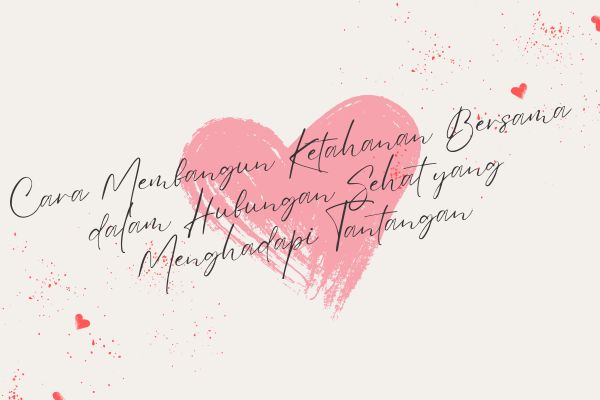 Cara Membangun Ketahanan Bersama
dalam Hubungan Sehat yang
Menghadapi Tantangan